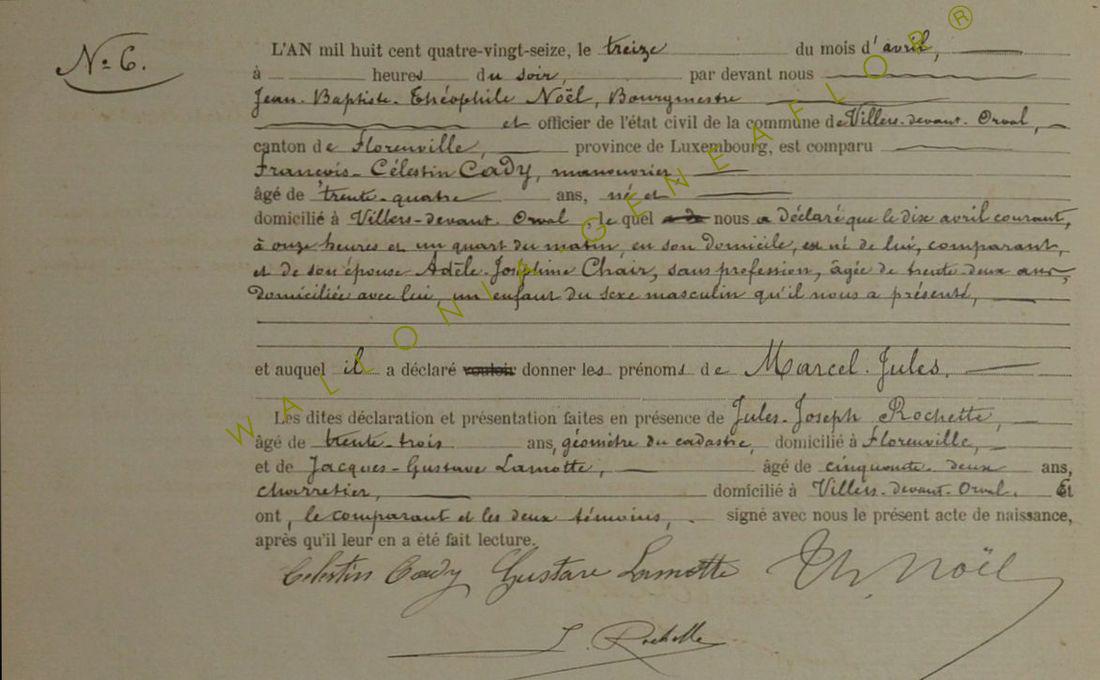 N° 6.
L'AN mil huit cent quatre-vingt-seize, le treize du mois d'avril,
à heures du soir, par devant nous
Jean-Baptiste-Théophile Noël, Bourgmestre
et officier de l'état civil de la commune de Villers-devant-Orval,
canton de Florenville, province de Luxembourg, est comparu
François-Célestin Cady, manouvrier
âgé de trente-quatre ans, né et
domicilié à Villers-devant-Orval, le quel nous a déclaré que le dix avril courant,
à onze heures et un quart du matin, en son domicile, est né de lui, comparant,
et de son épouse Adèle-Joséphine Chair, sans profession, âgée de trente-deux ans,
domiciliée avec lui, un enfant du sexe masculin qu'il nous a présenté,
et auquel il a déclaré vouloir donner les prénoms de Marcel-Jules.
Les dites déclaration et présentation faites en présence de Jules-Joseph Rochette,
âgé de trente-trois ans, géomètre du cadastre, domicilié à Florenville,
et de Jacques-Gustave Lamotte, âgé de cinquante-deux ans,
charretier, domicilié à Villers-devant-Orval. Et
ont, le comparant et les deux témoins, signé avec nous le présent acte de naissance,
après qu'il leur en a été fait lecture.
Celestin Cady Gustave Lamotte Th. Noël
J. Rochette
WALLONIA GENEAFLOR ®